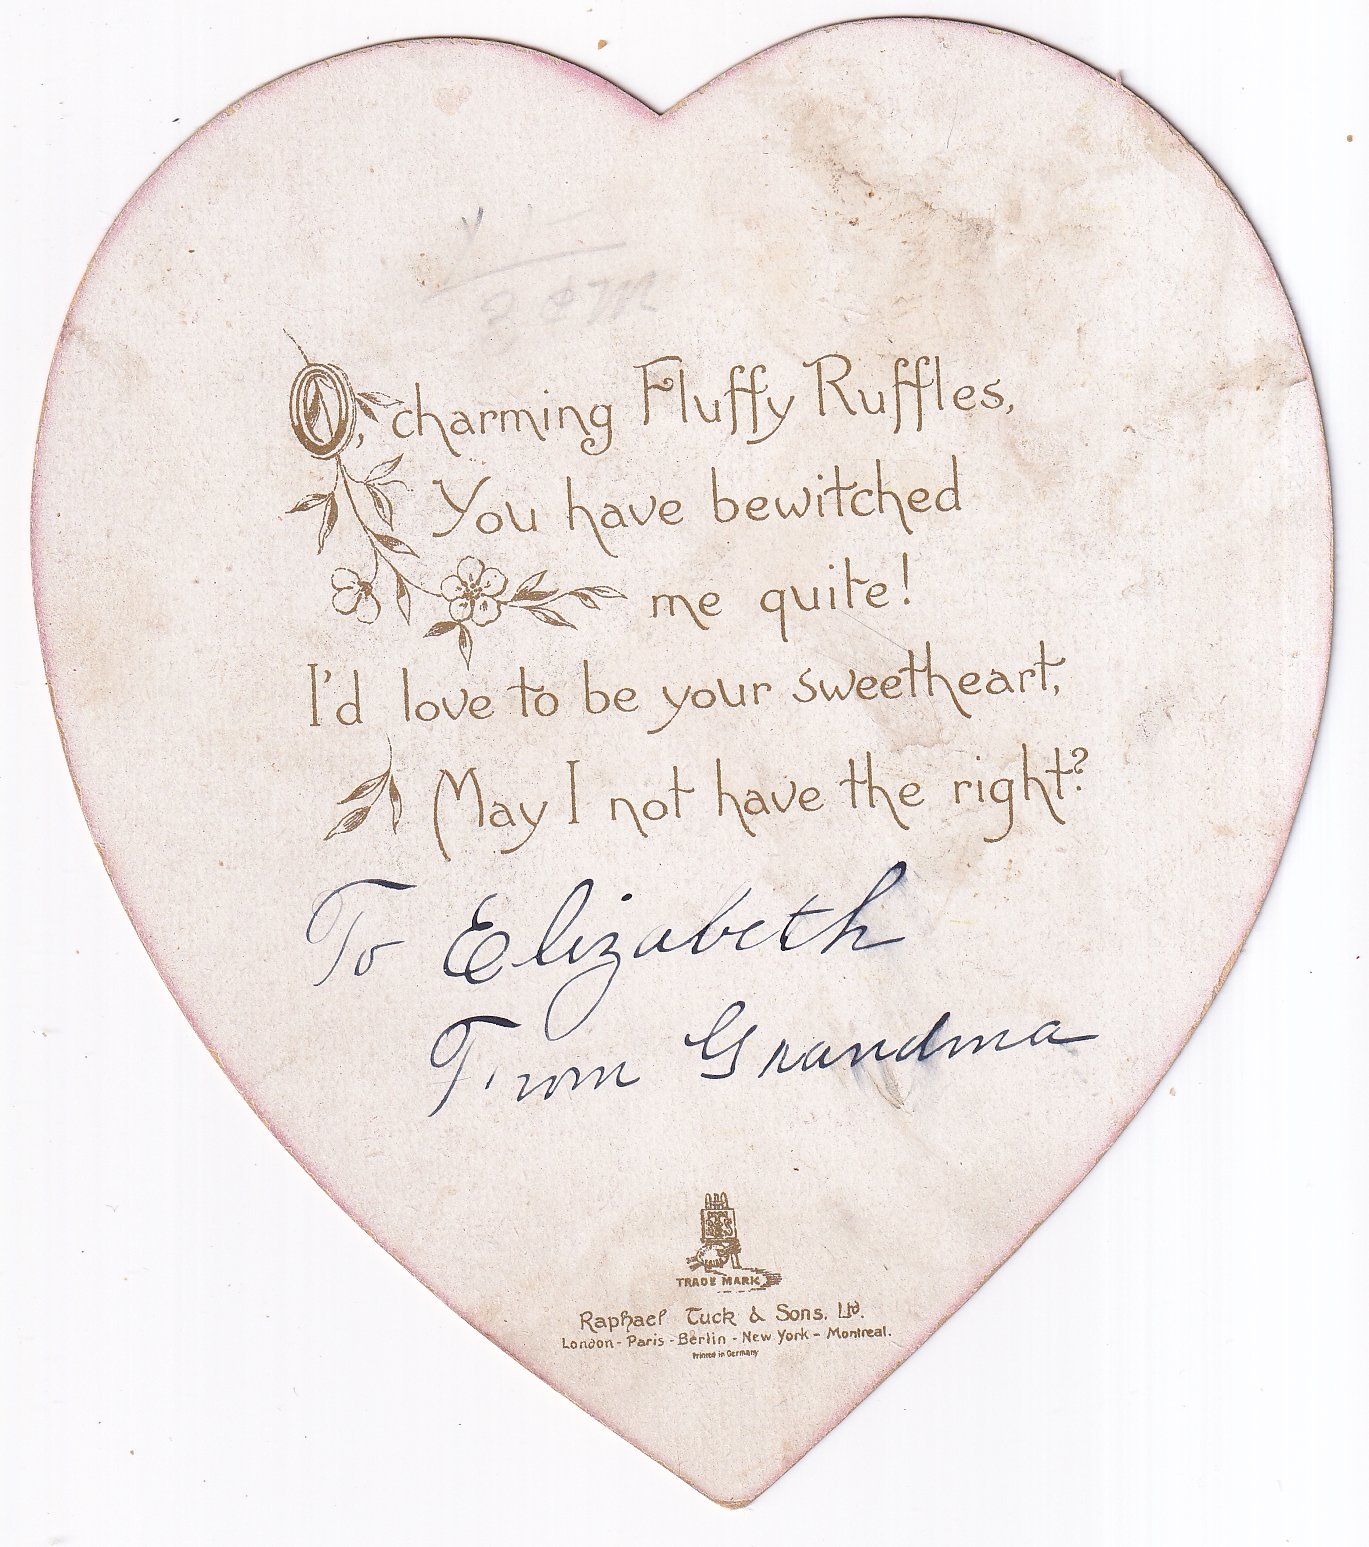 O, charming Fluffy Ruffles,
You have bewitched
me quite!
I'd love to be your sweetheart,
May I not have the right?
To Elizabeth
From Grandma
TRADE MARK
Raphael Tuck & Sons. Ltd.
London - Paris - Berlin - New York - Montreal.
Printed in Germany